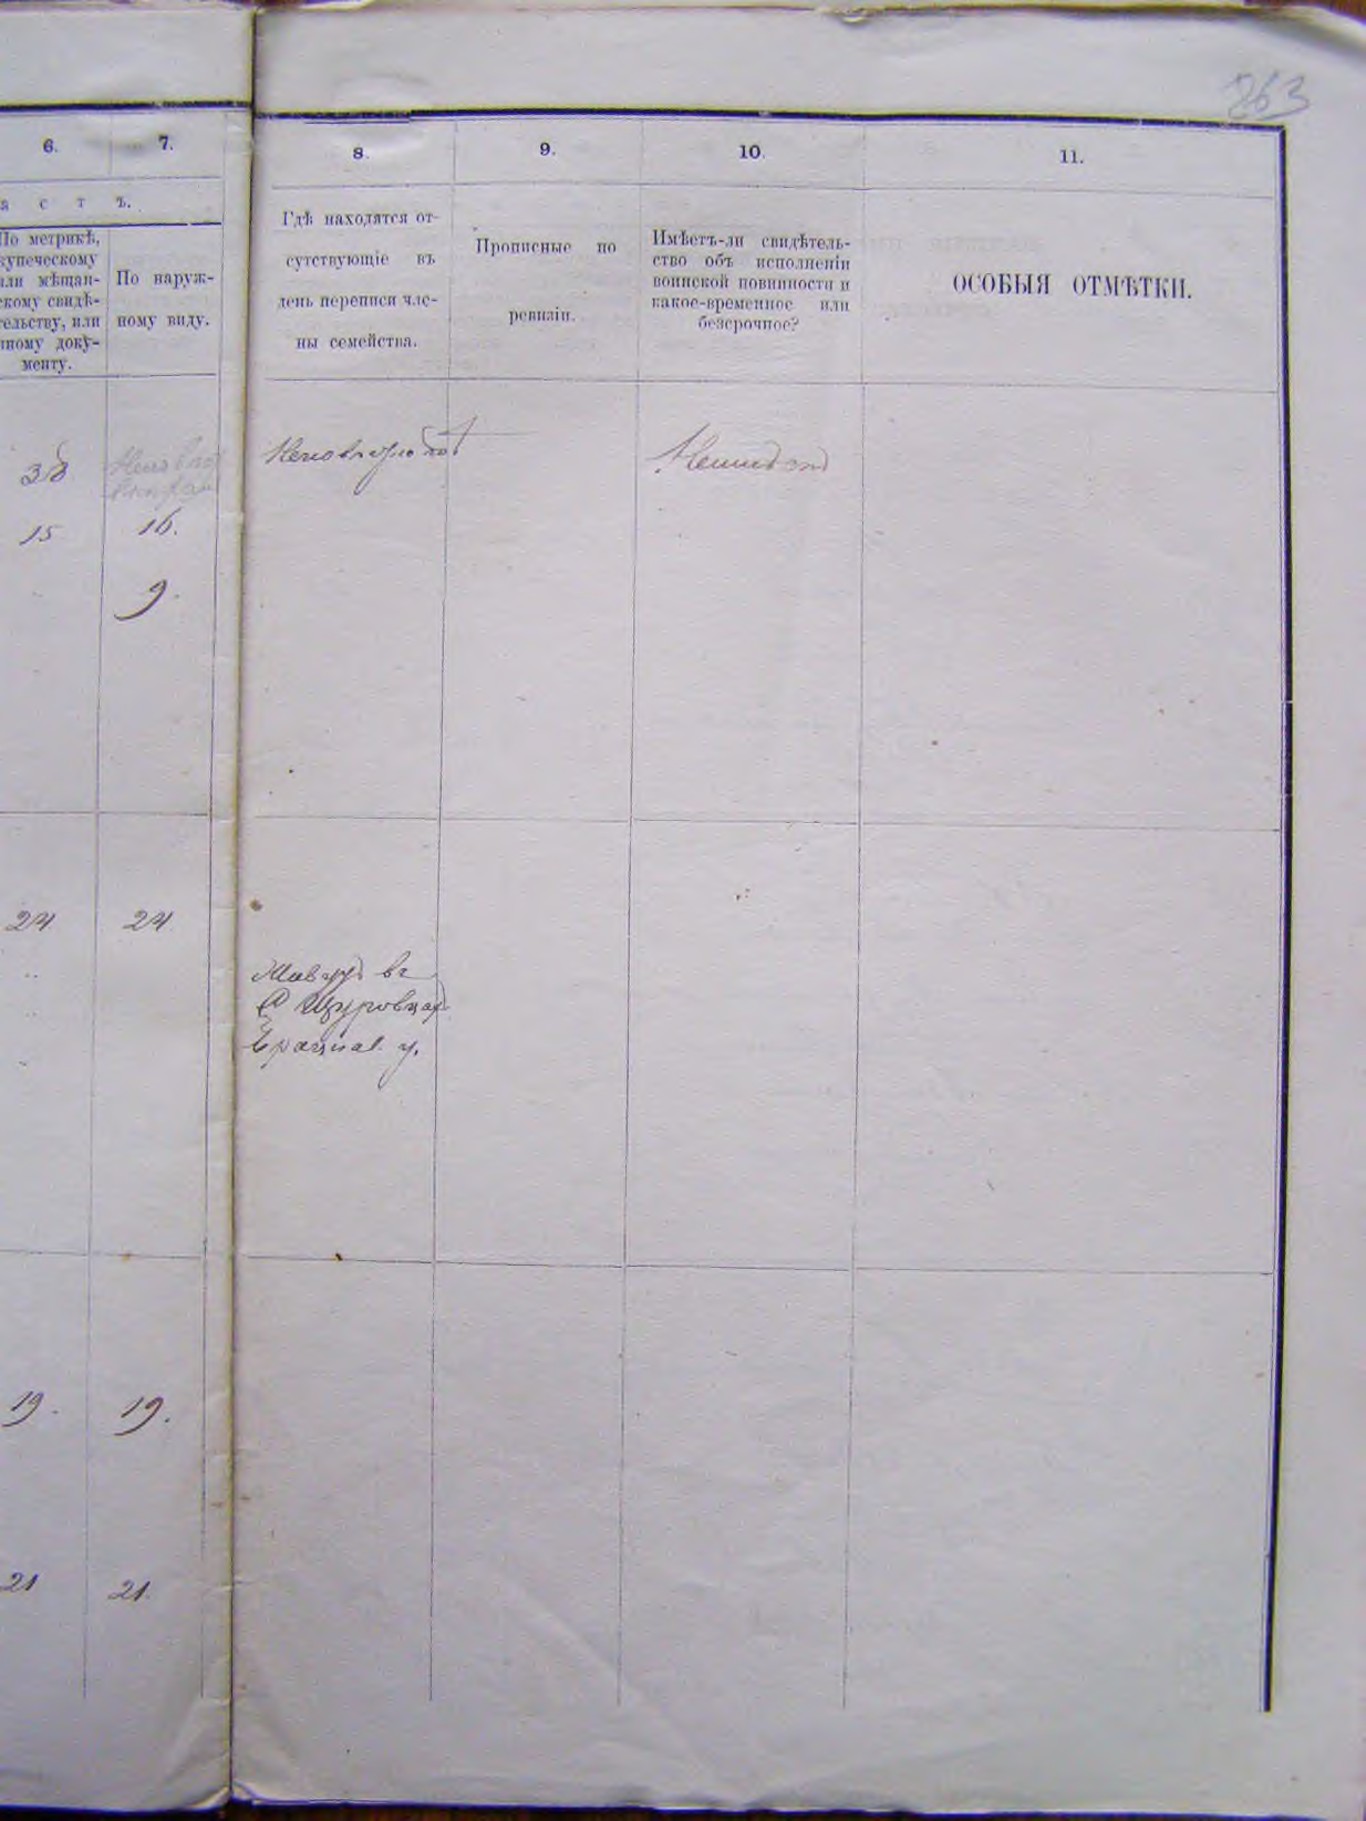 263
6.
7.
8.
9.
10.
11.
а с т ъ.
По метрикѣ,
купеческому
или мѣщан-
скому свидѣ-
тельству, или
иному доку-
менту.
По наруж-
ному виду.
Гдѣ находятся от-
сутствующіе въ
день переписи чле-
ны семейства.
Прописные по
ревизіи.
Имѣетъ-ли свидѣтель-
ство объ исполненіи
воинской повинности и
какое-временное или
безсрочное?
ОСОБЫЯ ОТМѢТКИ.
38
15
16.
9.
24
24
Живутъ въ
Щуровцах
у.
19.
19.
21
21.